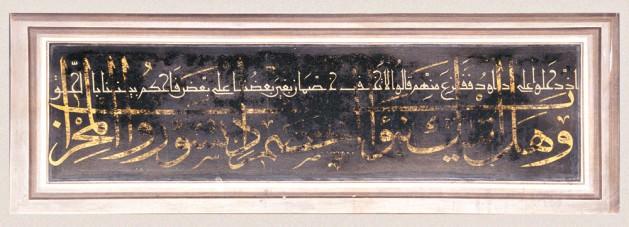 اذ دخلوا على داود ففزع منهم قالوا لا تخف خصمان بغى بعضنا على بعض فاحكم بيننا بالحق
وهل اتيك نبؤا الخصم اذ تسوروا المحراب